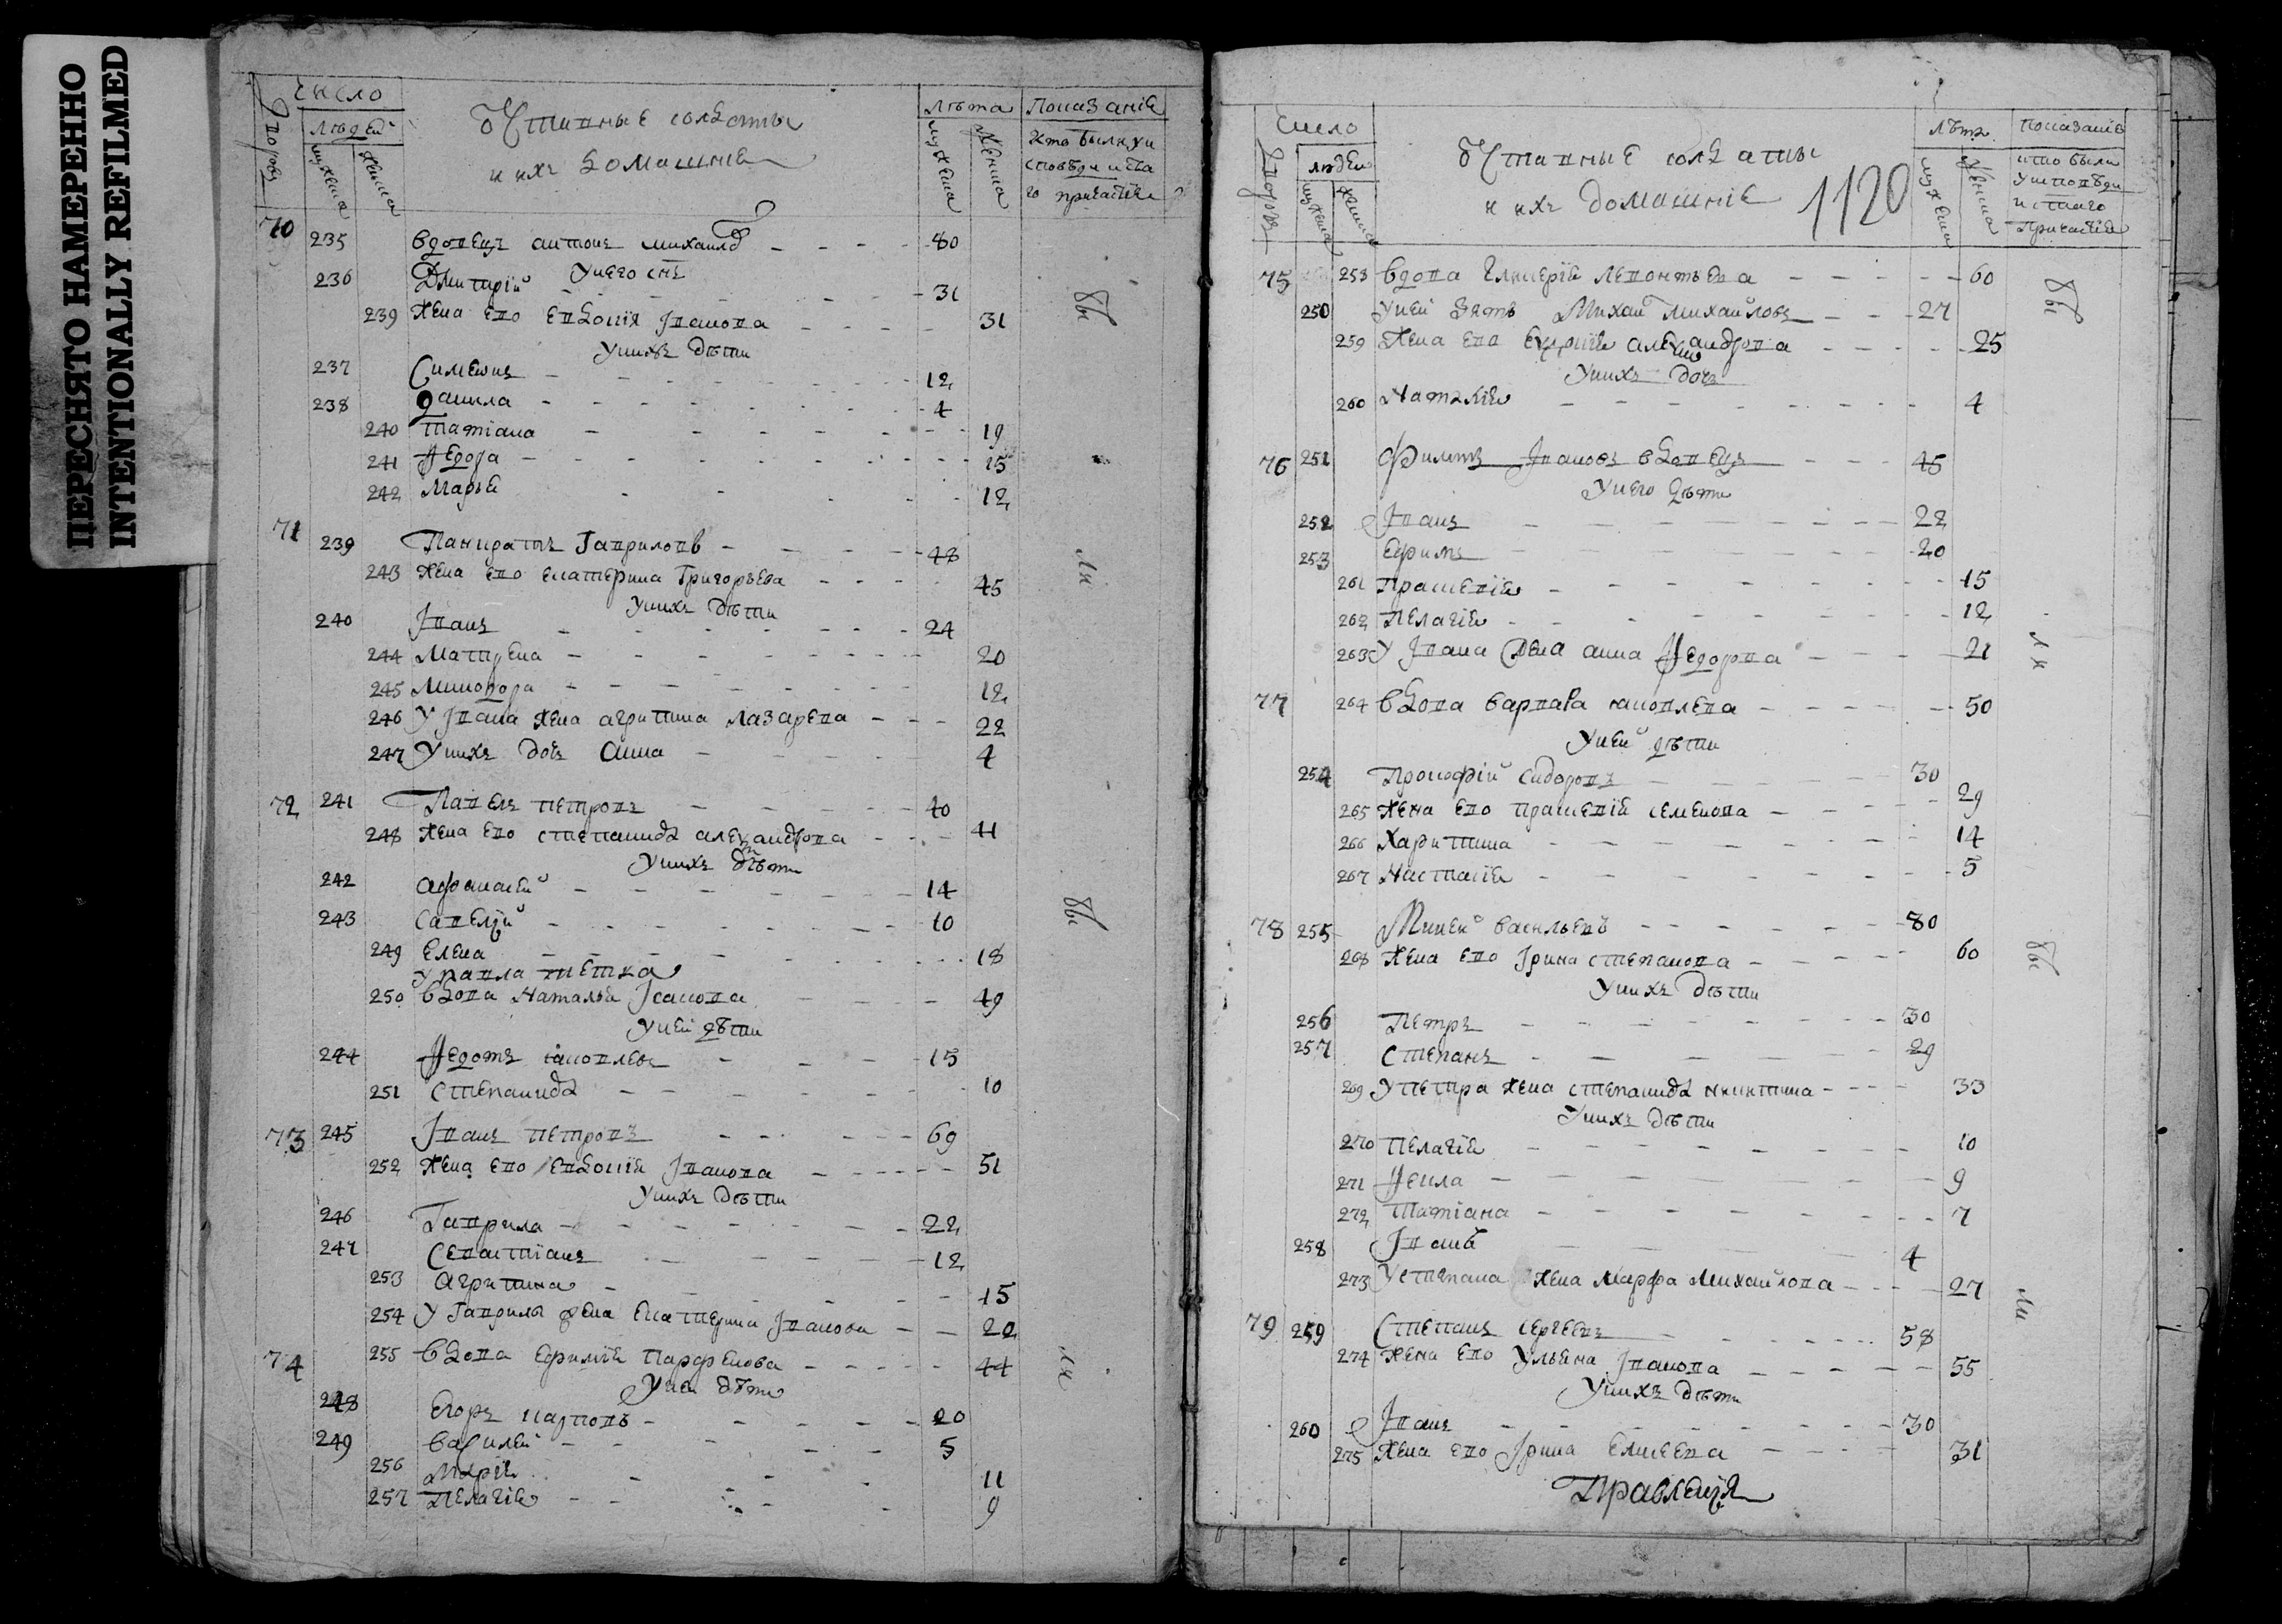 ПЕРЕСНЯТО НАМЕРЕННО
INTENTIONALLY REFILMED
Число
Людей
мужеска
женска
и ихъ домашнiе
Лѣта
мужеска
женска
Показанiе
кто былъ у и
сповѣди и свя
го причастiя
70 235 вдовецъ антонъ михаилов 80
у него снъ
236 Дмитрiй 31
239 жена ево евдокiя Iванова 31
у нихъ дѣти
237 Симеонъ 12
238 данила 4
240 татiана 19
241 Ѳедора 15
242 Марья 12
71 239 Панкратъ Гавриловъ 48
243 жена ево екатерина Григорьева 45
у нихъ дѣти
240 Iванъ 24
244 Матрена 20
245 Минодора 12
246 у Iвана жена агрипина лазарева 22
247 у нихъ дочь анна 4
72 241 Павелъ петровъ 40
248 жена ево степанида александрова 41
у нихъ дѣти
242 афанасей 14
243 савелiй 10
249 елена 18
у павла тетка
250 вдова наталья Iванова 49
у ней дѣти
244 Ѳедотъ яковлевъ 15
251 степанида 10
73 245 Iванъ петровъ 69
252 жена ево евдокiя Iванова 51
у нихъ дѣти
246 Гаврила 22
247 севастiанъ 12
253 агрипина 15
254 у Гаврилы жена екатерина Iванова 22
74 255 вдова ефимiя парфенова 44
у ней дѣти
248 егоръ карповъ 20
249 василей 5
256 марiя 11
257 пелагiя 9
бы
ли
бы
ли
Число
людей
мужеска
женска
и ихъ домашнiе
1120
Лѣта
мужеска
женска
Показанiе
кто были
у исповѣди
и стаго
Причастiя
75 258 вдова гликерiя леонтьева 60
250 у ней зять Михаил михайловъ 27
259 жена ево александрова 25
у нихъ дочь
260 Наталiя 4
76 251 Филипъ Iвановъ вдовецъ 45
у него дѣти
252 Iванъ 22
253 Ефимъ 20
261 Прасковiя 15
262 Пелагiя 12
263 у Iвана жена анна Ѳедорова 21
77 264 вдова варвара яковлева 50
у ней дѣти
254 Прокофiй сидоровъ 30
265 жена ево прасковiя семенова 29
266 Харитина 14
267 Настасiя 5
78 255 Миней васильевъ 80
268 жена ево Iрина степанова 60
у нихъ дѣти
256 Петръ 30
257 степанъ 29
269 у петра жена степанида никитина 33
у нихъ дѣти
270 пелагiя 10
271 Ѳекла 9
272 татiана 7
258 Iванъ 4
273 у степана жена марфа михайлова 27
79 259 Степанъ сергеевъ 58
274 жена ево Ульяна Iванова 55
у нихъ дѣти
260 Iванъ 30
275 жена ево Iрина елисеева 31
бы
ли
бы
ли